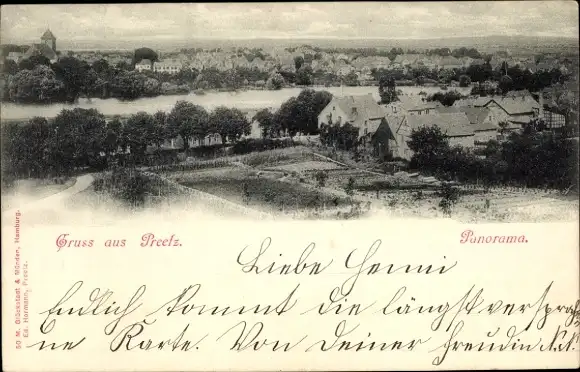 Gruss aus Preetz.
Panorama.
Liebe Henni
Endlich kommt die längst versproche
ne Karte. Von Deiner Freundin N.N.
50 M. Glückstadt & Münden, Hamburg.
Ed. Hormann, Preetz.